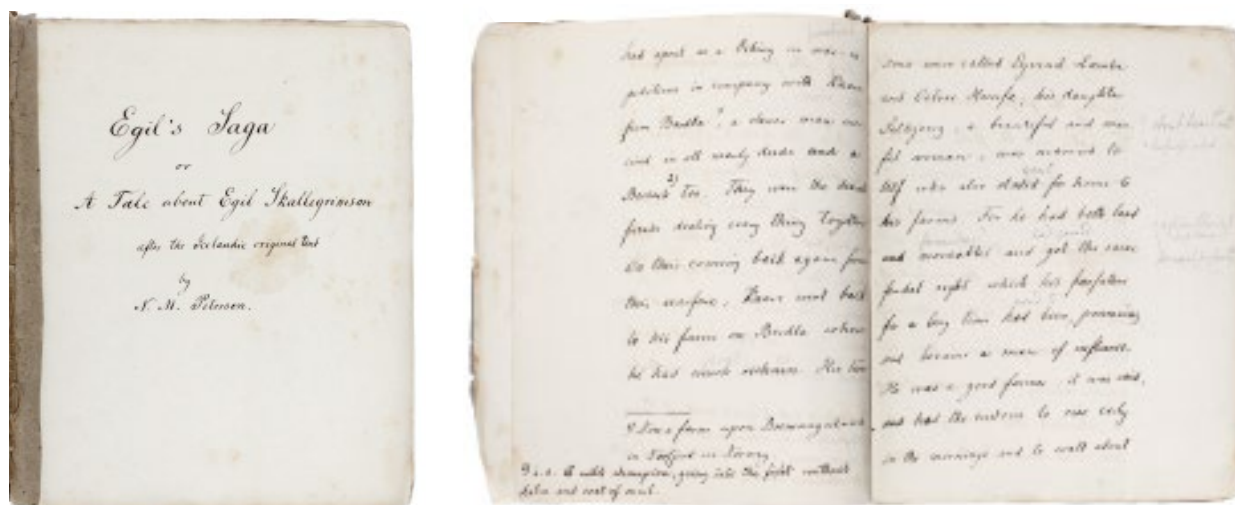 Egil's Saga
or
A Tale about Egil Skallegrimson
after the Icelandic original text
by
N. M. Peterson.
had spent as a Viking in war-ex
peditions in company with Kaare
from Berdla, a clever man
in all manly deeds and a
Berserk 2) too. They were the dearest
friends dealing every thing together
On their coming back again from
this warfare, Kaare went back
to his farm on Berdla where
he had much richness. His two
farm upon
in in Norway
2) i.e. A wild champion, going into the fight without
helm and coat of mail.
sons were called Eyvind Lambe
and Ølver Hnufe; his daughter
Salbjorg, a beautiful and
ful woman, was married to
Ulf who also for home to
his farms. For he had both land
and moveables and got the same
feudal right which his forfathers
for a long time had been possessing
and became a man of influence.
He was a good farmer, it was said,
and had the custom to rise early
in the mornings and to walk about